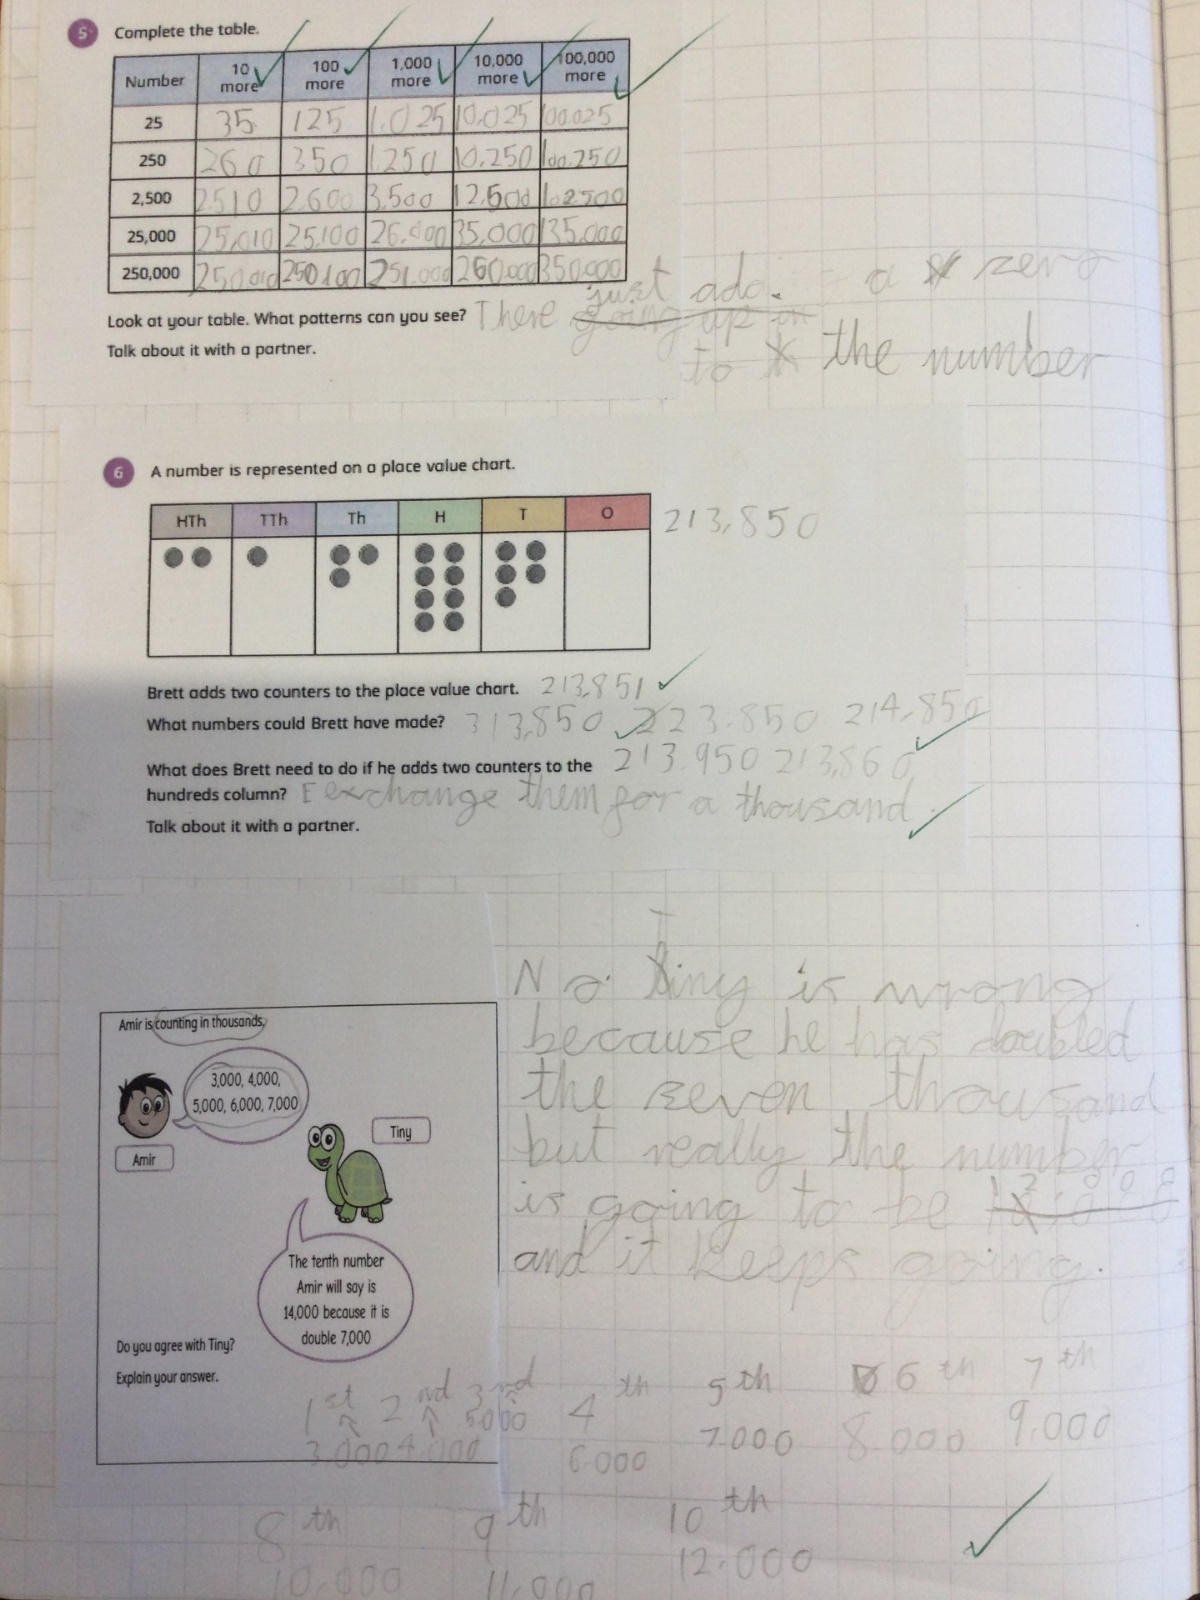 5 Complete the table.
Number 10 more 100 more 1,000 more 10,000 more 100,000 more
25 35 125 1.025 10.025 100.025
250 260 350 1.250 10.250 100.250
2,500 2510 2600 3.500 12.500 102500
25,000 25,010 25,100 26.000 35,000 135.000
250,000 250.010 250100 251.000 260.000 350.000
Look at your table. What patterns can you see? There going up in just add. a zero
Talk about it with a partner. to the number
6 A number is represented on a place value chart.
HTh TTh Th H T O 213,850
Brett adds two counters to the place value chart. 213,851
What numbers could Brett have made? 313,850 223.850 214,850
What does Brett need to do if he adds two counters to the 213.950 213,860
hundreds column? exchange them for a thousand.
Talk about it with a partner.
No. Tiny is wrong
because he has doubled
the seven thousand
but really the number
is going to be 12,000
and it keeps going.
Amir is counting in thousands.
3,000, 4,000,
5,000, 6,000, 7,000
Amir
Tiny
The tenth number
Amir will say is
14,000 because it is
double 7,000
Do you agree with Tiny?
Explain your answer.
1st 2nd 3rd 4th 5th 6th 7th
3.000 4.000 5.000 6.000 7.000 8.000 9.000
8th 9th 10th
10.000 11.000 12.000